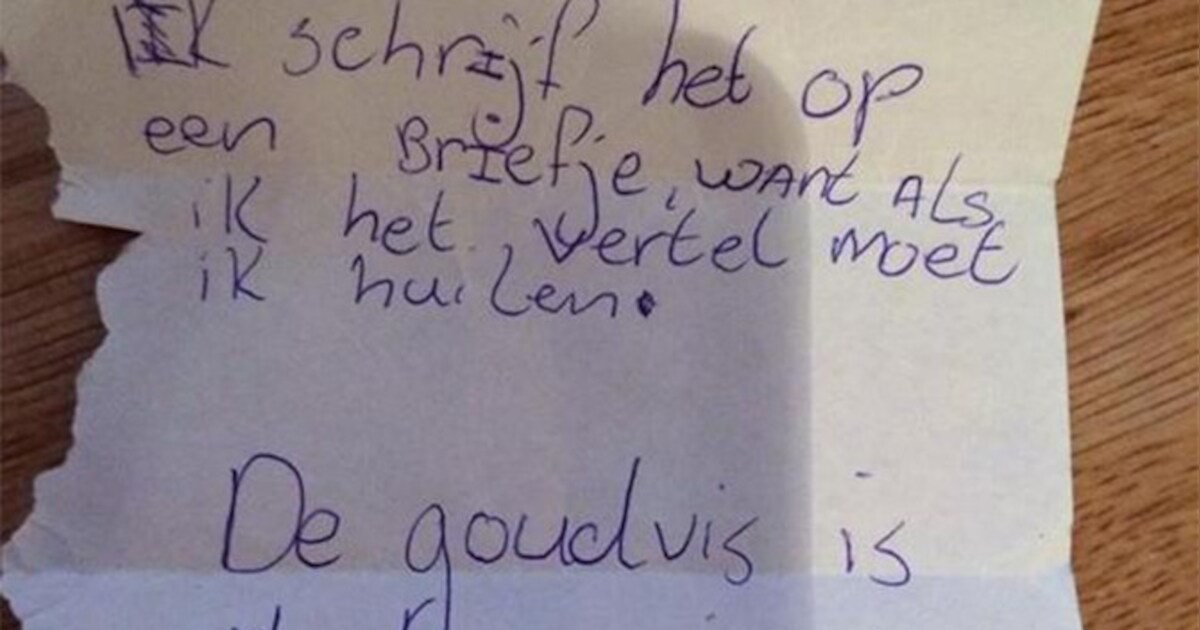 Ik schrijf het op
een Briefje, want Als
ik het vertel moet
ik huilen.
De goudvis is